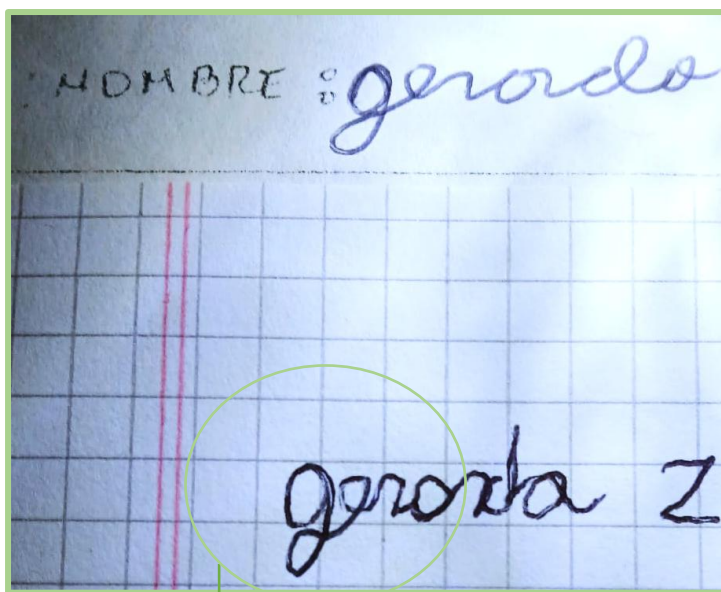 NOMBRE : gerardo
gerarda Z